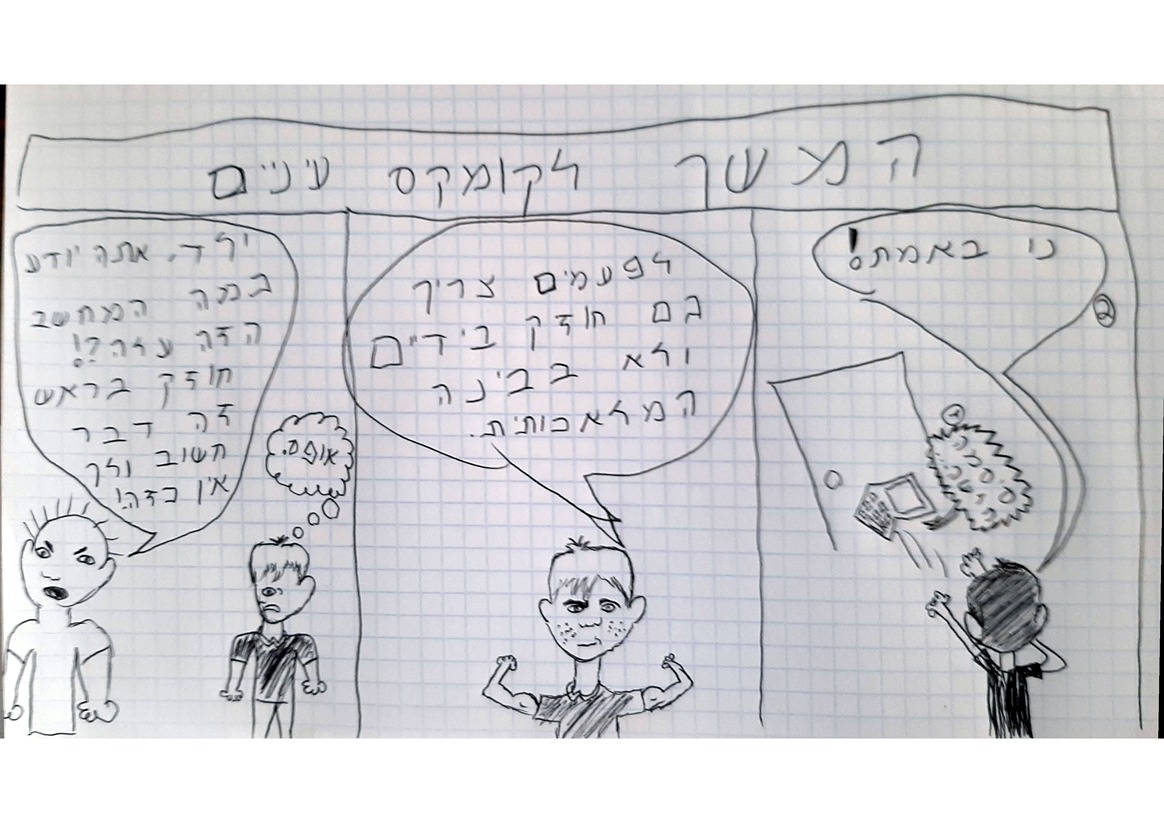 המשך לקומקס עינים
נו באמת!
2
1
לפעמים צריך
גם חוזק בידיים
ולא בבינה
המלאכותית.
ילד, אתה יודע
כמה המחשב
הזה עלה?!
חוזק בראש
זה דבר
חשוב ולך
אין כזה!
אופס.